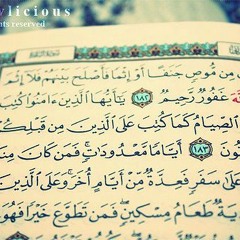 vlicious
hts reserved
مِن مُّوصٍ جَنَفًا أَوْ إِثْمًا فَأَصْلَحَ بَيْنَهُمْ فَلَآ إِثْمَ
غَفُورٌ رَّحِيمٌ ١٨٢ يَٰٓأَيُّهَا ٱلَّذِينَ ءَامَنُوا۟ كُتِبَ
ٱلصِّيَامُ كَمَا كُتِبَ عَلَى ٱلَّذِينَ مِن قَبْلِكُ
ونَ ١٨٣ أَيَّامًا مَّعْدُودَٰتٍ ۚ فَمَن كَانَ مِن
عَلَىٰ سَفَرٍ فَعِدَّةٌ مِّنْ أَيَّامٍ أُخَرَ ۚ وَعَلَى ٱلَّذِينَ
يَةٌ طَعَامُ مِسْكِينٍ ۖ فَمَن تَطَوَّعَ خَيْرًا فَهُوَ